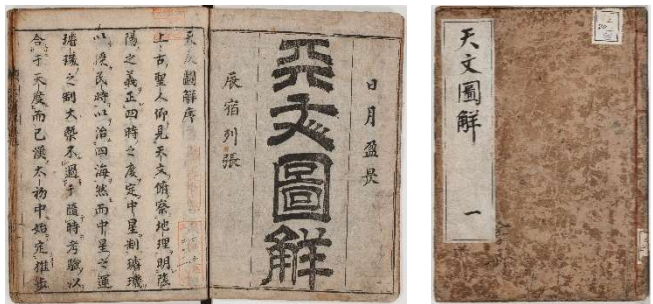 日月盈昃
天文圖解
辰宿列張
天文圖解序
上古聖人仰見天文俯察地理明陰
陽之義正四時之度定中星制璿璣
以 民時以治四海然而中星之運
璿璣之制大槩不過乎隨時考驗以
合于天度而已漢太初中始定推步
天文圖解 一